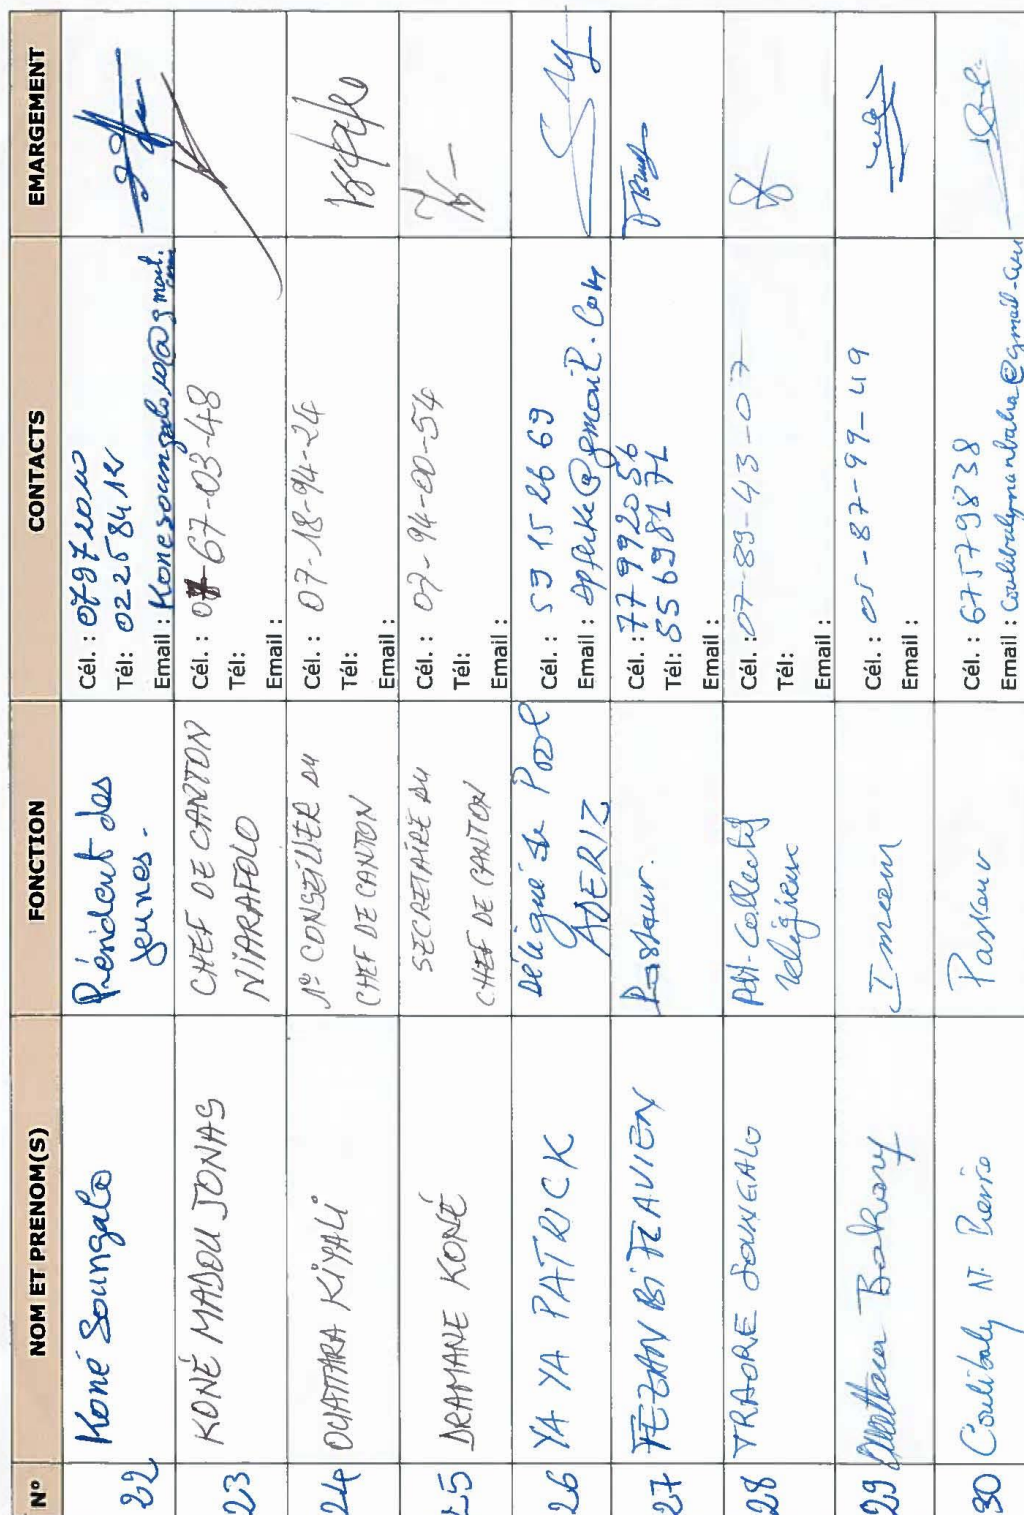 N° NOM ET PRENOM(S) FONCTION CONTACTS EMARGEMENT
22 Koné Soungalo Président des jeunes. Cél. : 07972010
Tél: 02258412
Email : Konesoungalo10@gmail.com
23 KONÉ MADOU JONAS CHEF DE CANTON NIARAFOLO Cél. : 07-67-03-48
Tél:
Email :
24 OUATTARA KIYALI 1er CONSEILLER DU CHEF DE CANTON Cél. : 07-18-94-24
Tél:
Email :
25 DRAMANE KONÉ SECRETAIRE DU CHEF DE CANTON Cél. : 07-94-00-54
Tél:
Email :
26 YA YA PATRICK Délégué de Pool ADERIZ Cél. : 59 15 26 69
Email :
27 TEZAN BI FLAVIEN Pasteur. Cél. : 77992056
Tél: 55698171
Email :
28 TRAORE SOUNGALO Pdt-Collectif religieux Cél. : 07-89-43-07
Tél:
Email :
29 Ouattara Bakary Imam Cél. : 05-87-99-49
Email :
30 Coulibaly N. Pierre Pasteur Cél. : 67579838
Email : Coulibalynanbaha@gmail.com